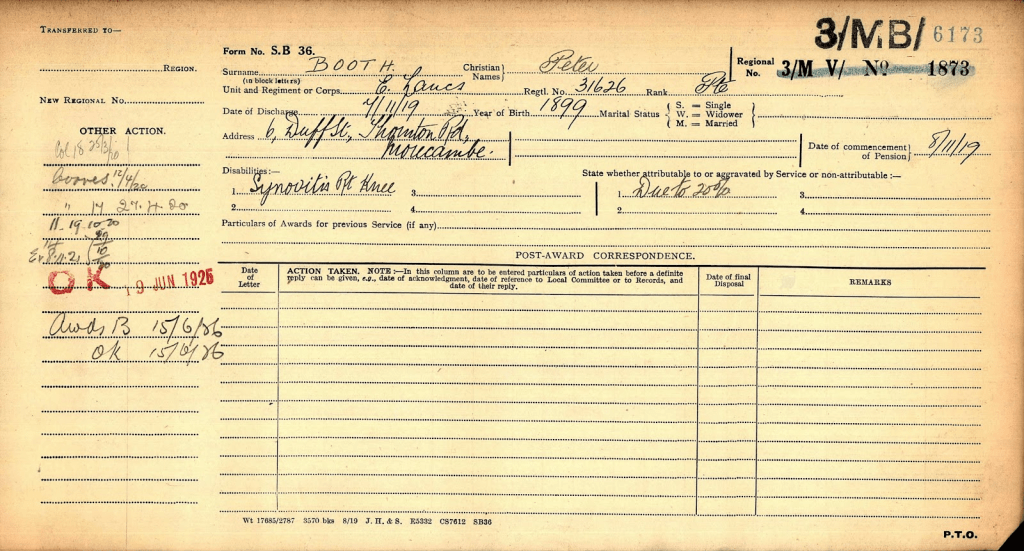 TRANSFERRED TO—
REGION.
NEW REGIONAL No.
OTHER ACTION.
Col 18 25/3/20
12/4/20
" 14 27.4.20
11. 19.10.20
8.11.21
OK 19 JUN 1926
Awds B 15/6/26
OK 15/6/26
3/MB/ 6173
Form No. S.B 36.
Surname BOOTH. Christian Names Peter
(in block letters)
Regional No. 3/M V/ No 1873
Unit and Regiment or Corps. E. Lancs Regtl. No. 31626 Rank Pte
Date of Discharge 7/11/19 Year of Birth 1899 Marital Status S. = Single
W. = Widower
M. = Married
Address 6, Duff St, Thornton Rd,
Morecambe.
Date of commencement of Pension 8/11/19
Disabilities:— State whether attributable to or aggravated by Service or non-attributable :—
1. Synovitis Rt Knee 3. 1. Due to 20% 3.
2. 4. 2. 4.
Particulars of Awards for previous Service (if any)
POST-AWARD CORRESPONDENCE.
Date of Letter
ACTION TAKEN. NOTE :—In this column are to be entered particulars of action taken before a definite
reply can be given, e.g., date of acknowledgment, date of reference to Local Committee or to Records, and
date of their reply.
Date of final Disposal
REMARKS
Wt 17685/2787 3570 bks 8/19 J. H. & S. E5332 CS7612 SB36
P.T.O.